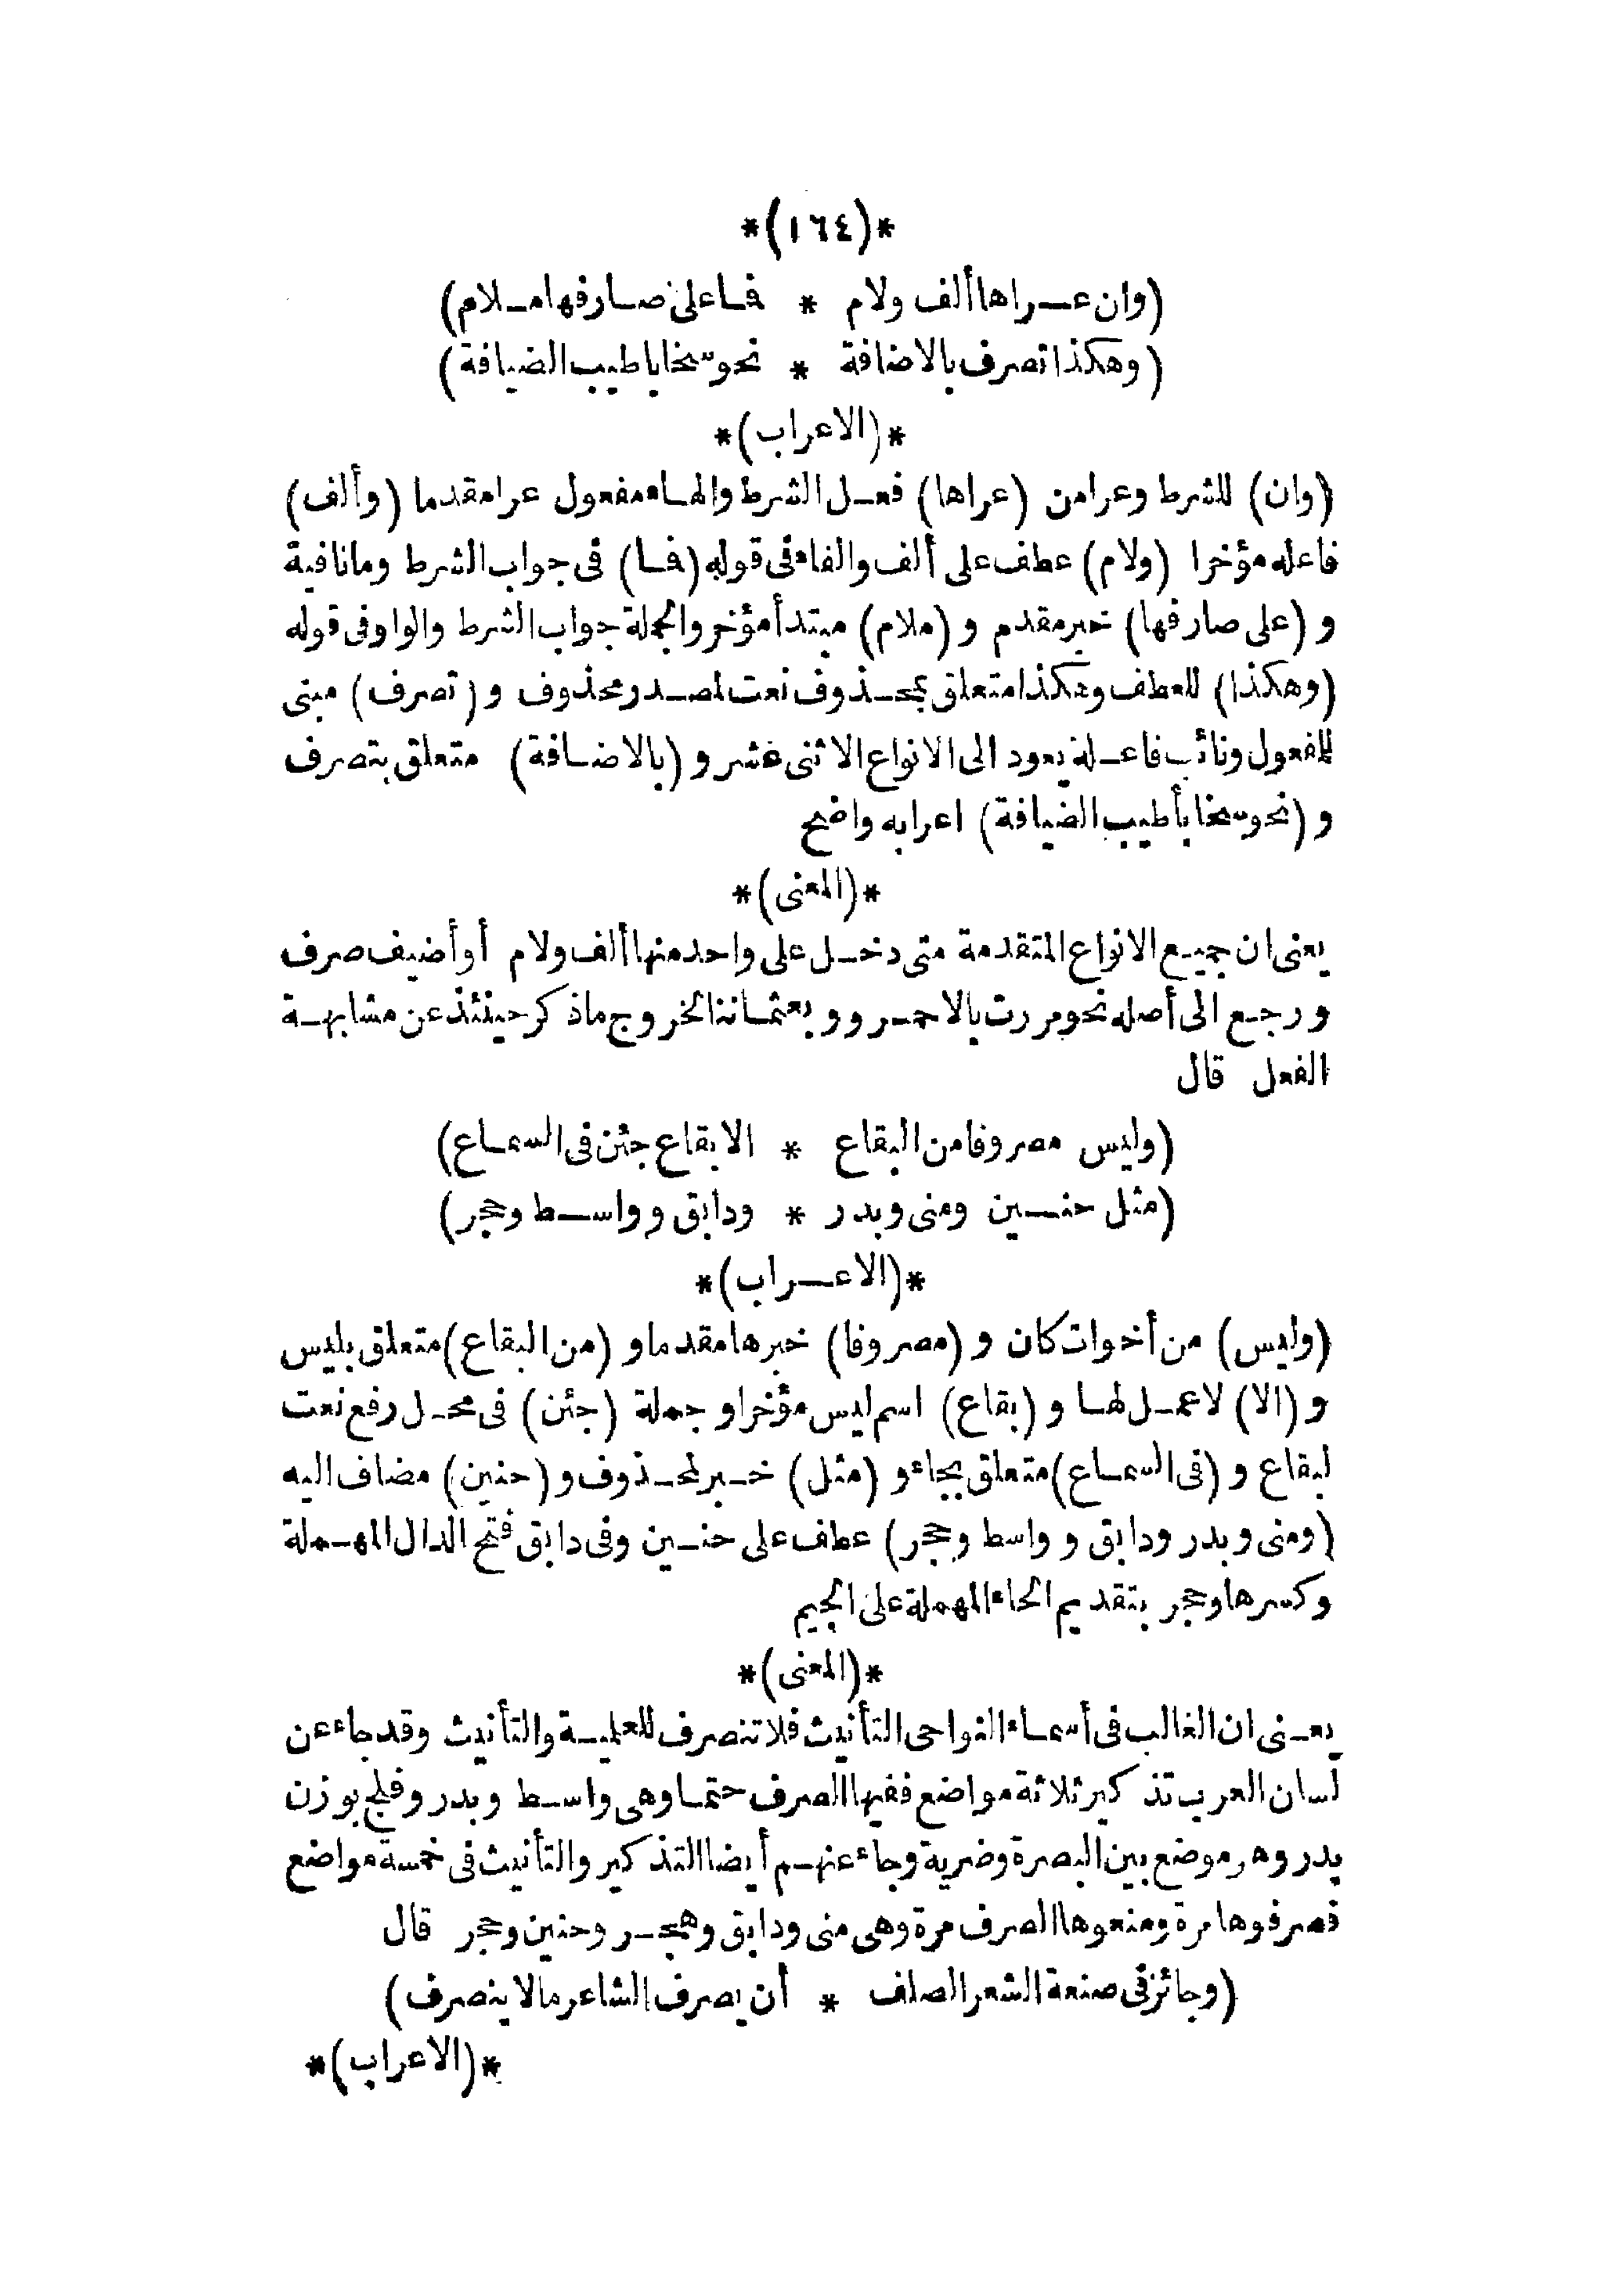 *(١٦٤)*
(وان عراها ألف ولام * فما على صارفها ملام)
(وهكذا تصرف بالاضافة * نحو سخا باطيب الضيافة)
*(الاعراب)*
(وان) للشرط وعرا من (عراها) فعل الشرط والهاء مفعول عرا مقدما (وألف)
فاعله مؤخرا (ولام) عطف على ألف والفاء فى قوله (فما) فى جواب الشرط وما نافية
و (على صارفها) خبر مقدم و (ملام) مبتدأ مؤخر والجملة جواب الشرط والواو فى قوله
(وهكذا) للعطف وهكذا متعلق بمحذوف نعت لمصدر محذوف و (تصرف) مبنى
للمفعول ونائب فاعله يعود الى الانواع الاثنى عشر و (بالاضافة) متعلق بتصرف
و (نحو سخا بأطيب الضيافة) اعرابه واضح
*(المعنى)*
يعنى ان جميع الانواع المتقدمة متى دخل على واحد منها ألف ولام أو أضيف صرف
ورجع الى أصله نحو مررت بالاحمر و وبعثماننا لخروج ماذكر حينئذ عن مشابهة
الفعل قال
(وليس مصروفا من البقاع * الا بقاع جئن فى السماع)
(مثل حنين ومنى وبدر * ودابق وواسط وحجر)
*(الاعراب)*
(وليس) من أخوات كان و (مصروفا) خبرها مقدما و (من البقاع) متعلق بليس
و (الا) لا عمل لها و (بقاع) اسم ليس مؤخرا وجملة (جئن) فى محل رفع نعت
لبقاع و (فى السماع) متعلق بجاء و (مثل) خبر لمحذوف و (حنين) مضاف اليه
(ومنى وبدر ودابق و واسط وحجر) عطف على حنين وفى دابق فتح الدال المهملة
وكسرها وحجر بتقديم الحاء المهملة على الجيم
*(المعنى)*
يعنى ان الغالب فى أسماء النواحى التأنيث فلا تنصرف للعلمية والتأنيث وقد جاء عن
لسان العرب تذكير ثلاثة مواضع ففيها الصرف حتما وهى واسط وبدر وفلج بوزن
بدر وهو موضع بين البصرة وضرية وجاء عنهم أيضا التذكير والتأنيث فى خمسة مواضع
فصرفوها مرة ومنعوها الصرف مرة وهى منى ودابق وهجر وحنين وحجر قال
(وجائز فى صنعة الشعر الصلف * أن يصرف الشاعر مالا ينصرف)
*(الاعراب)*